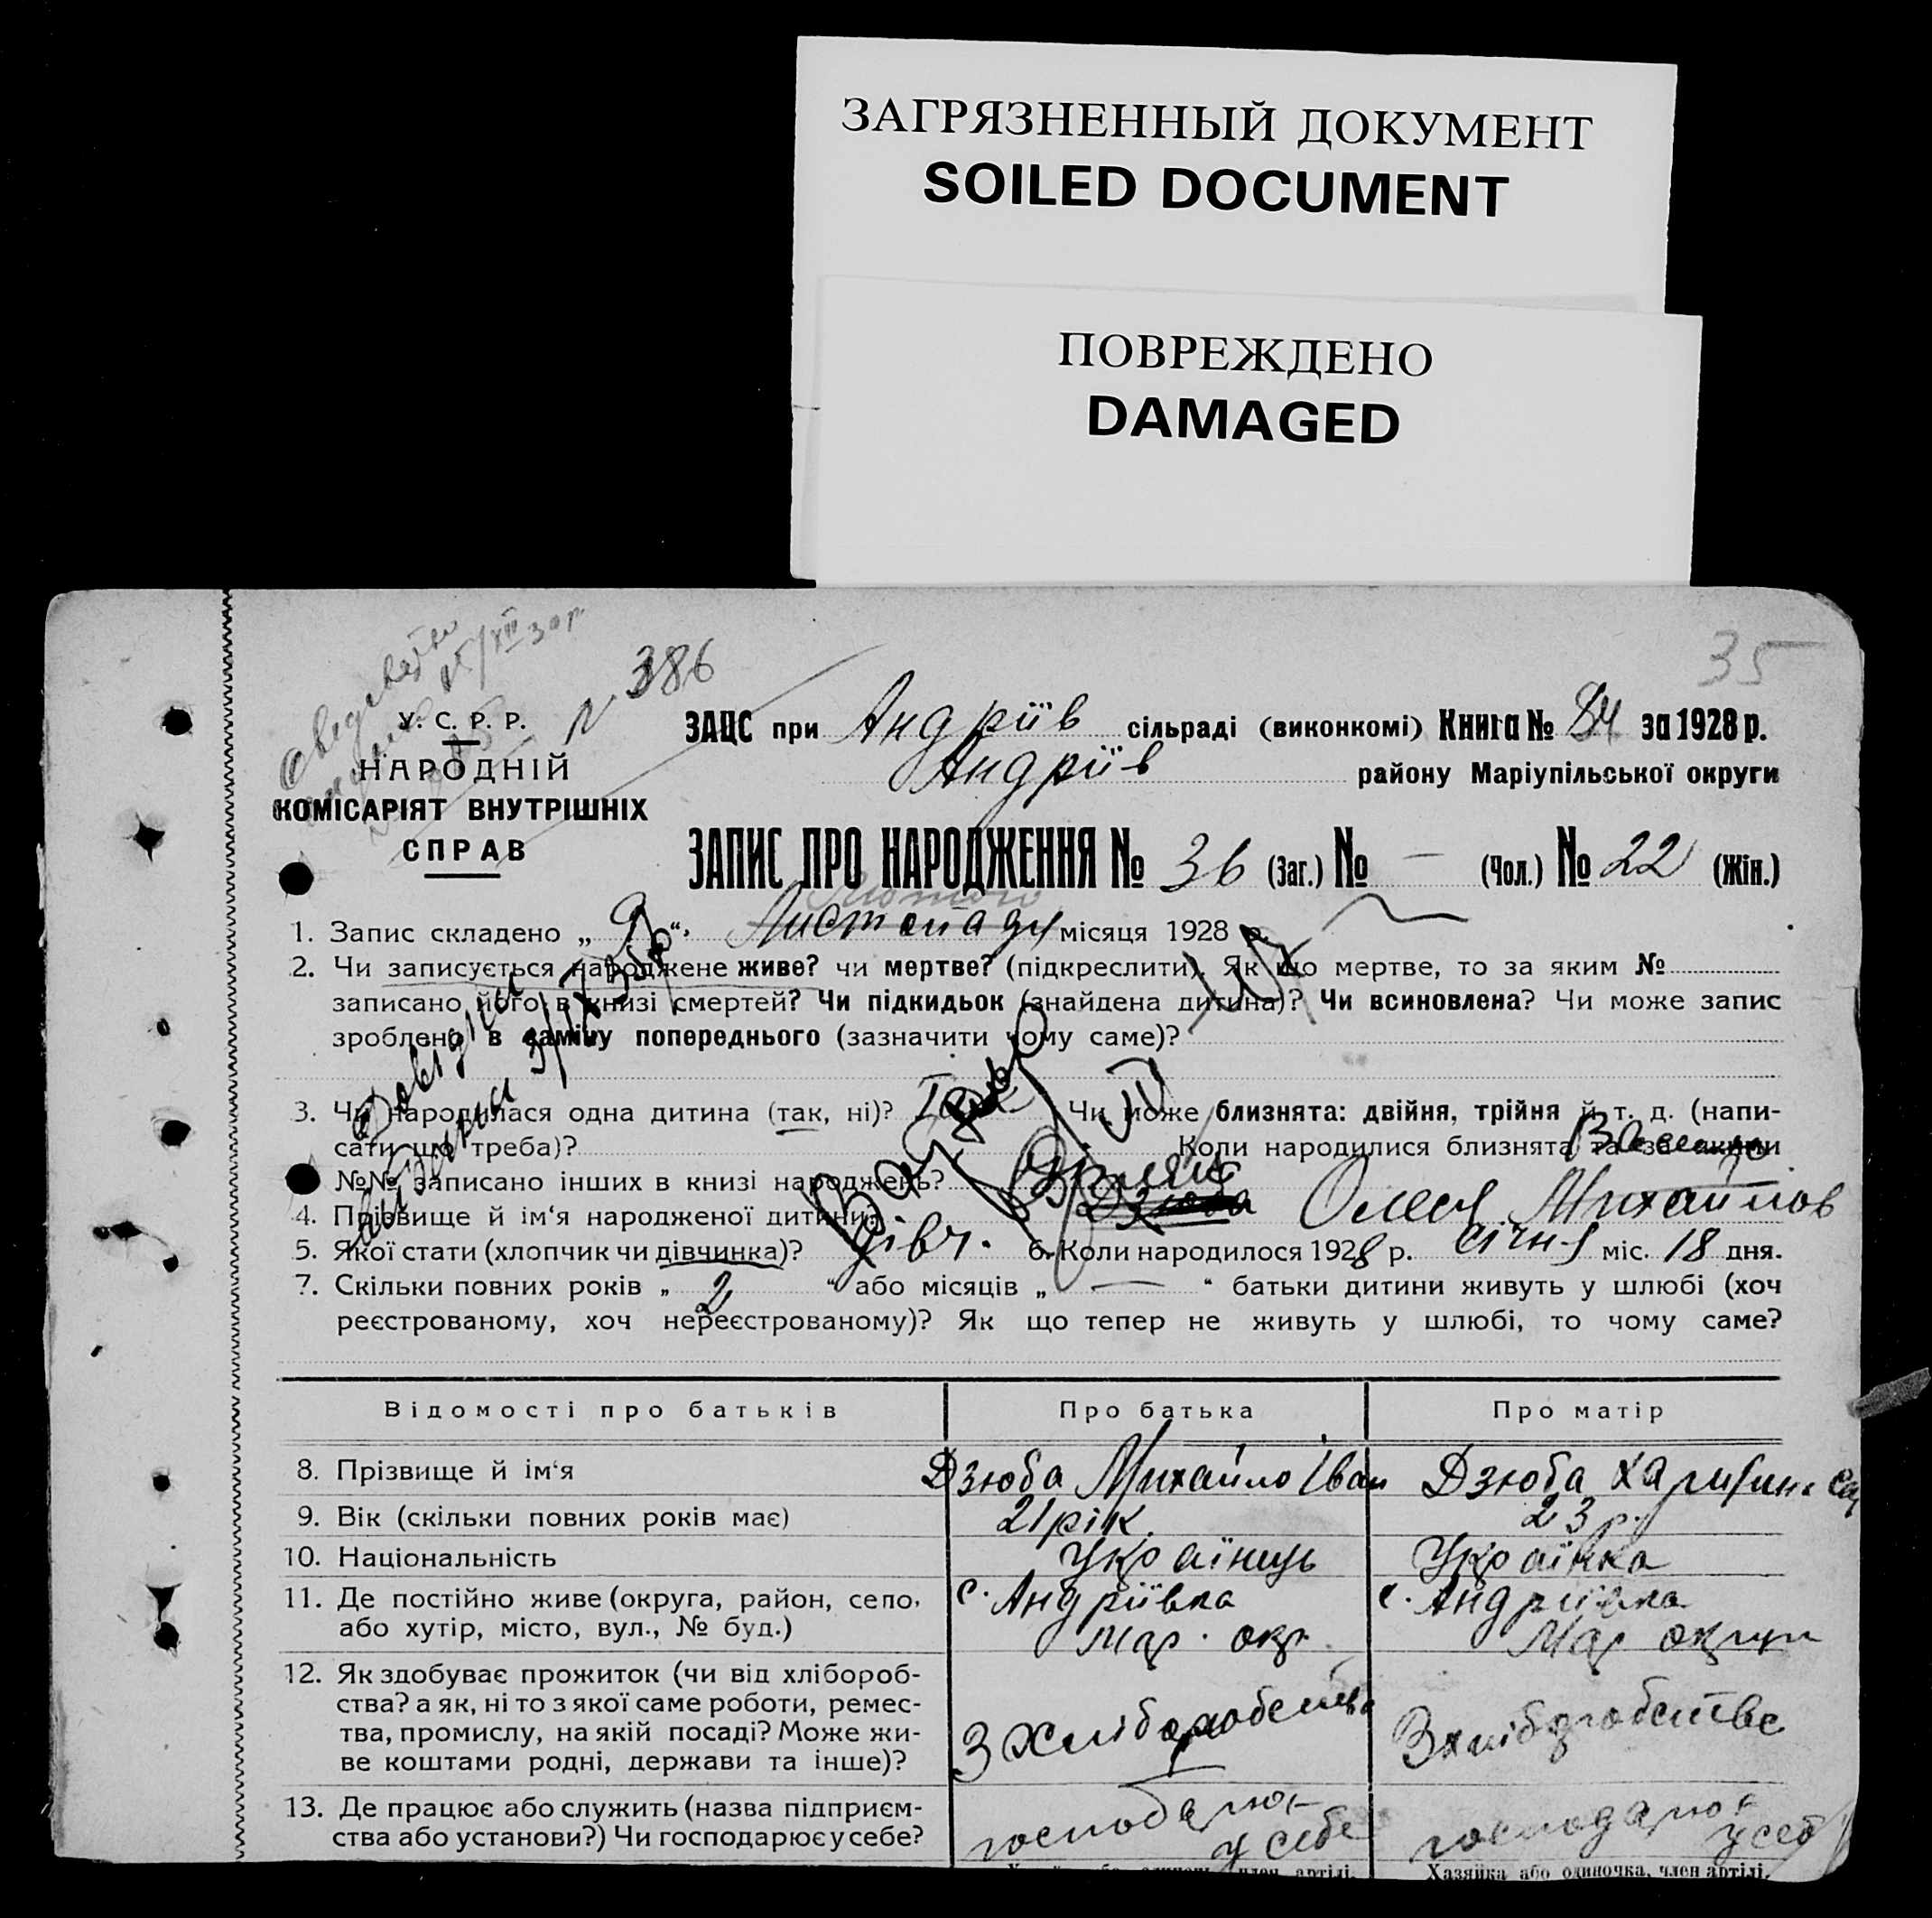 ЗАГРЯЗНЕННЫЙ ДОКУМЕНТ
SOILED DOCUMENT
ПОВРЕЖДЕНО
DAMAGED
35
N 386
У. С. Р. Р.
НАРОДНІЙ
КОМІСАРІЯТ ВНУТРІШНІХ
СПРАВ
ЗАЦС при Андріїв сільраді (виконкомі) Книга № 84 за 1928 р.
Андріїв району Маріупільської округи
ЗАПИС ПРО НАРОДЖЕННЯ № 36 (Заг.) № — (Чол.) № 22 (Жін.)
Лютого
1. Запис складено „ 9 “ Листопаду місяця 1928 р.
2. Чи записується народжене живе? чи мертве? (підкреслити). Як що мертве, то за яким №
записано його в книзі смертей? Чи підкидьок (знайдена дитина)? Чи всиновлена? Чи може запис
зроблено в заміну попереднього (зазначити чому саме)?
3. Чи народилася одна дитина (так, ні)? Чи може близнята: двійня, трійня й т. д. (напи-
сати що треба)? Коли народилися близнята та за якими
№№ записано інших в книзі народжень?
4. Прізвище й ім‘я народженої дитини: Дзюба Олеся Михайлов
5. Якої стати (хлопчик чи дівчинка)? дівч. 6. Коли народилося 1928 р. січня міс. 18 дня.
7. Скільки повних років „ 2 “ або місяців „ — “ батьки дитини живуть у шлюбі (хоч
реєстрованому, хоч нереєстрованому)? Як що тепер не живуть у шлюбі, то чому саме?
Відомості про батьків Про батька Про матір
8. Прізвище й ім‘я Дзюба Михайло Іван Дзюба
9. Вік (скільки повних років має) 21 рік. 23 р.
10. Національність Українець Українка
11. Де постійно живе (округа, район, село, с. Андріївка с. Андріївка
або хутір, місто, вул., № буд.) Мар. окр. Мар округи
12. Як здобуває прожиток (чи від хлібороб-
ства? а як, ні то з якої саме роботи, ремес-
тва, промислу, на якій посаді? Може жи- З Хліборобства З хліборобства
ве коштами родні, держави та інше)?
13. Де працює або служить (назва підприєм- господарює господарює
ства або установи?) Чи господарює у себе? у себе у себ
Хазяйка або одиночка, член артілі,